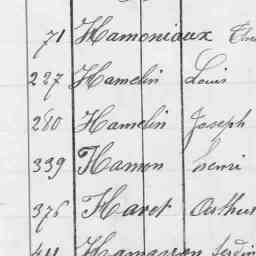 71 Hamoniaux
227 Hamelin Louis
280 Hamelin Joseph
339 Hamon henri
376 Havet Arthur